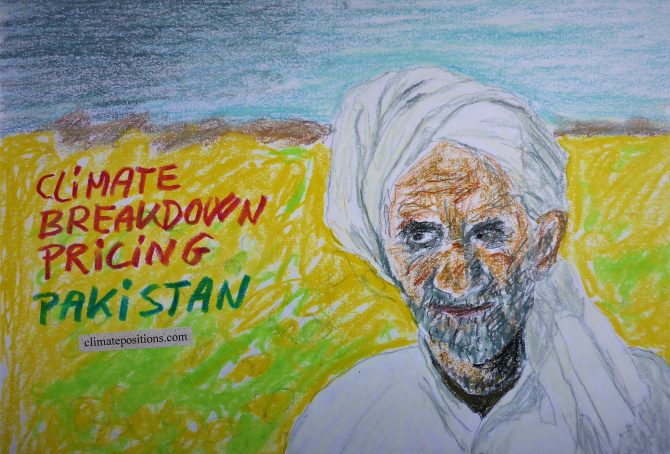 CLiMATE
BREAKDOWN
PRiCiNG
PAKiSTAN
climatepositions.com